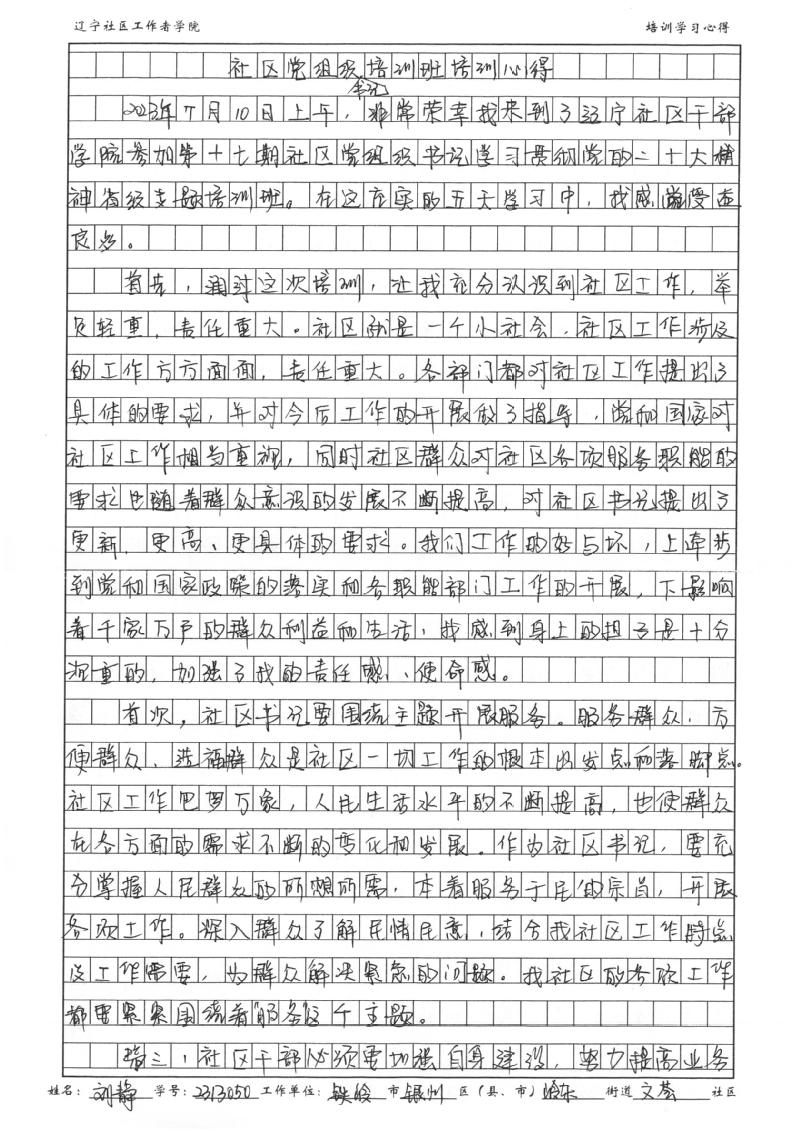 辽宁社区工作者学院 培训学习心得
社区党组织书记培训班培训心得
2023年7月10日上午，非常荣幸我来到了辽宁社区干部
学院参加第十七期社区党组织书记学习贯彻党的二十大精
神省级专题培训班。在这充实的五天学习中，我感觉受益
良多。
首先，通过这次培训，让我充分认识到社区工作，举
足轻重，责任重大。社区就是一个小社会，社区工作涉及
的工作方方面面，责任重大。各部门都对社区工作提出了
具体的要求，并对今后工作的开展做了指导，党和国家对
社区工作相当重视，同时社区群众对社区各项服务职能的
要求也随着群众意识的发展不断提高，对社区书记提出了
更新、更高、更具体的要求。我们工作的好与坏，上牵涉
到党和国家政策的落实和各职能部门工作的开展，下影响
着千家万户的群众利益和生活，我感到身上的担子是十分
沉重的，加强了我的责任感、使命感。
首次，社区书记要围绕主题开展服务。服务群众，方
便群众、造福群众是社区一切工作的根本出发点和落脚点。
社区工作包罗万象，人民生活水平的不断提高，也使群众
在各方面的需求不断的变化和发展。作为社区书记，要充
分掌握人民群众的所想所需，本着服务于民的宗旨，开展
各项工作。深入群众了解民情民意，结合我社区工作特点
及工作需要，为群众解决紧急的问题。我社区的各项工作
都要紧紧围绕着"服务"这个主题。
第三，社区干部必须要加强自身建设，努力提高业务
姓名：刘静 学号：2313050 工作单位：铁岭 市 银州 区（县、市）岭东 街道 文荟 社区